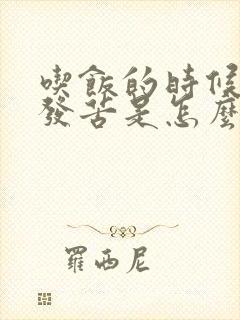 喫飯的時候
發苦是怎麼
羅西尼